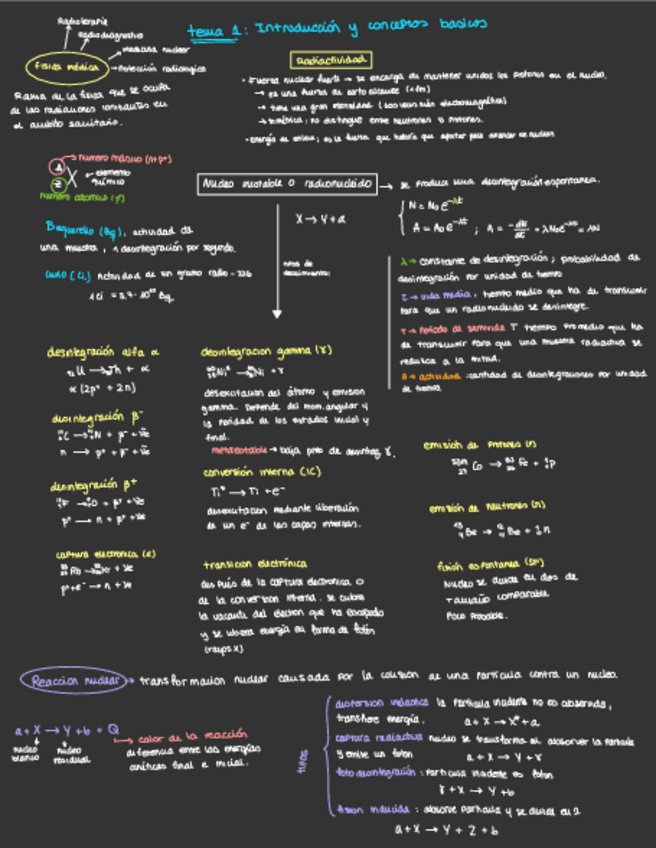 tema 1: Introducción y conceptos basicos
Radioterapia
Radiodiagnostico
medicina nuclear
Protección radiologica
física médica
Rama de la física que se ocupa
de las radiaciones ionizantes en
el ambito sanitario.
Radiactividad
• Fuerza nuclear fuerte → se encarga de mantener unidos los protones en el nucleo.
→ es una fuerza de corto alcance
→ tiene una gran intensidad (100 veces más electromagnética)
→ no distingue entre neutrones y protones.
numero másico (n+p+)
A
Z X ← elemento químico
numero atomico (p+)
Nucleo inestable o radionucleido → se produce una desintegración espontanea.
X → Y + a
N = N₀e^-λt
Bequerelio (Bq), actividad de
una muestra, 1 desintegración por segundo.
Curio (Ci) Actividad de un gramo radio - 226
tipos de
decaimiento:
λ → constante de desintegración; probabilidad de
desintegración por unidad de tiempo
τ → vida media, tiempo medio que ha de transcurrir
para que un radionucleido se desintegre.
T → Periodo de semivida T tiempo promedio que ha
de transcurrir para que una muestra radiactiva se
reduzca a la mitad.
A → actividad: cantidad de desintegraciones por unidad
de tiempo
desintegración alfa α
U → Th + α
α (2p⁺ + 2n)
desintegración β⁻
n → p⁺ + β⁻ + ν̄e
desintegración β⁺
p⁺ → n + β⁺ + νe
captura electronica (ε)
p⁺ + e⁻ → n + νe
desintegracion gamma (γ)
Ni* → Ni + γ
desexcitacion del átomo y emision
gamma. Depende del mom. angular y
la paridad de los estados inicial y
final.
metaestable → baja prob de desinteg γ.
conversión interna (IC)
Ti* → Ti + e⁻
desexcitacion mediante liberación
de un e⁻ de las capas internas.
transicion electrónica
después de la captura electronica o
de la conversion interna. se cubre
la vacante del electron que ha escapado
y se libera energía en forma de fotón
(rayos x)
emisión de protones (p)
Co → Fe + p
emisión de neutrones (n)
Be → Be + n
fisión espontanea (SF)
Nucleo se divide en dos de
tamaño comparable
Poco probable.
Reaccion nuclear → transformacion nuclear causada por la colision de una particula contra un nucleo.
a + X → Y + b + Q
nucleo
blanco
nucleo
residual
calor de la reacción
diferencia entre las energías
cinéticas final e inicial.
tipos
dispersion inelastica la particula incidente no es absorvida,
transfiere energía. a + X → X* + a
captura radiactiva nucleo se transforma al absorver la particula
y emite un foton a + X → Y + γ
foto desintegración: particula incidente es foton
γ + X → Y + b
fision inducida: absorve particula y se divide en 2
a + X → Y + Z + b